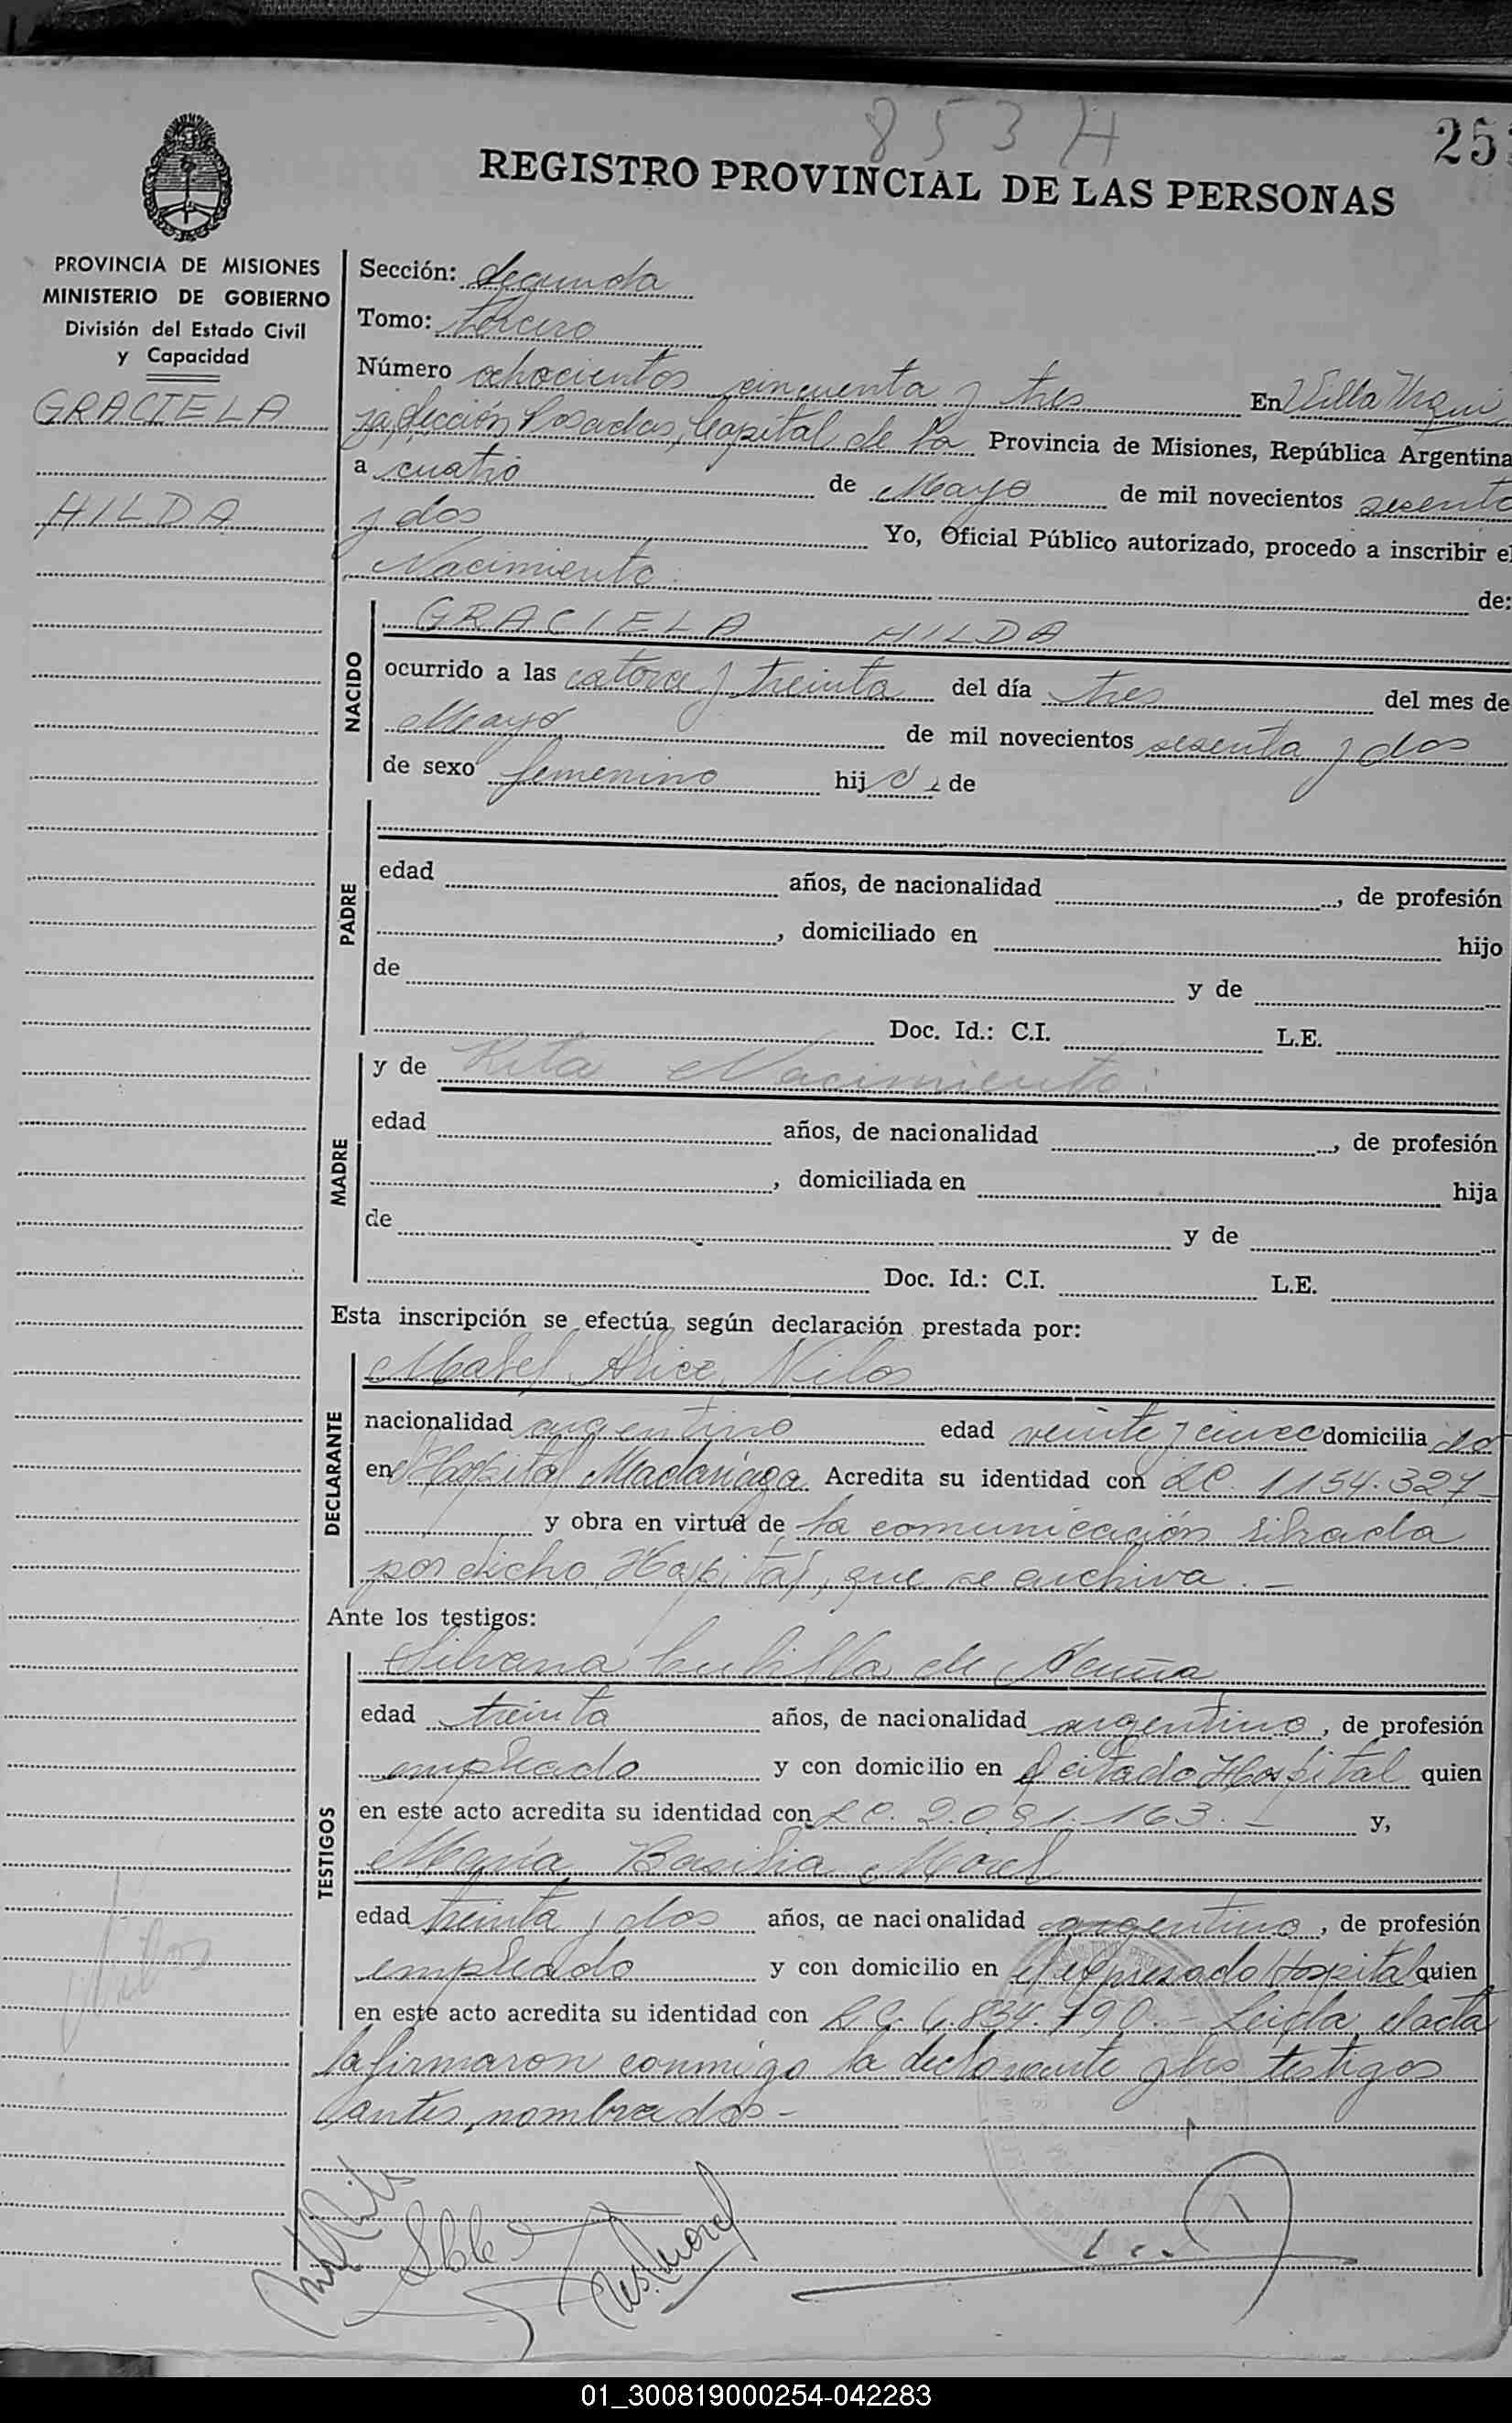 853 H
25
REGISTRO PROVINCIAL DE LAS PERSONAS
PROVINCIA DE MISIONES
MINISTERIO DE GOBIERNO
División del Estado Civil
y Capacidad
GRACIELA
HILDA
Sección: Segunda
Tomo: tercero
Número ochocientos cincuenta y tres En Villa Urqui
za, sección Posadas, Capital de la Provincia de Misiones, República Argentina
a cuatro de Mayo de mil novecientos sesenta
y dos Yo, Oficial Público autorizado, procedo a inscribir el
Nacimiento de:
NACIDO
GRACIELA HILDA
ocurrido a las catorce y treinta del día tres del mes de
Mayo de mil novecientos sesenta y dos
de sexo femenino hij de
PADRE
edad años, de nacionalidad , de profesión
, domiciliado en hijo
de y de
Doc. Id.: C.I. L.E.
MADRE
y de Rita Nacimiento
edad años, de nacionalidad , de profesión
, domiciliada en hija
de y de
Doc. Id.: C.I. L.E.
Esta inscripción se efectúa según declaración prestada por:
DECLARANTE
Mabel Alice Nilos
nacionalidad argentino edad veinte y cinco domicilia do
en Hospital Madariaga. Acredita su identidad con LC. 1154.327
y obra en virtud de la comunicación librada
por dicho Hospital, que se archiva. -
Ante los testigos:
TESTIGOS
Silvana Cubilla de
edad treinta años, de nacionalidad argentino, de profesión
empleado y con domicilio en el citado Hospital quien
en este acto acredita su identidad con LC. 2.091.163. - y,
María Basilia Morel
edad treinta y dos años, de nacionalidad argentino, de profesión
empleado y con domicilio en el expresado Hospital quien
en este acto acredita su identidad con L.C. 6.834.790. - Leida el acta
la firmaron conmigo la declarante y los testigos
antes nombrados -
Nilos
Morel
01_300819000254-042283